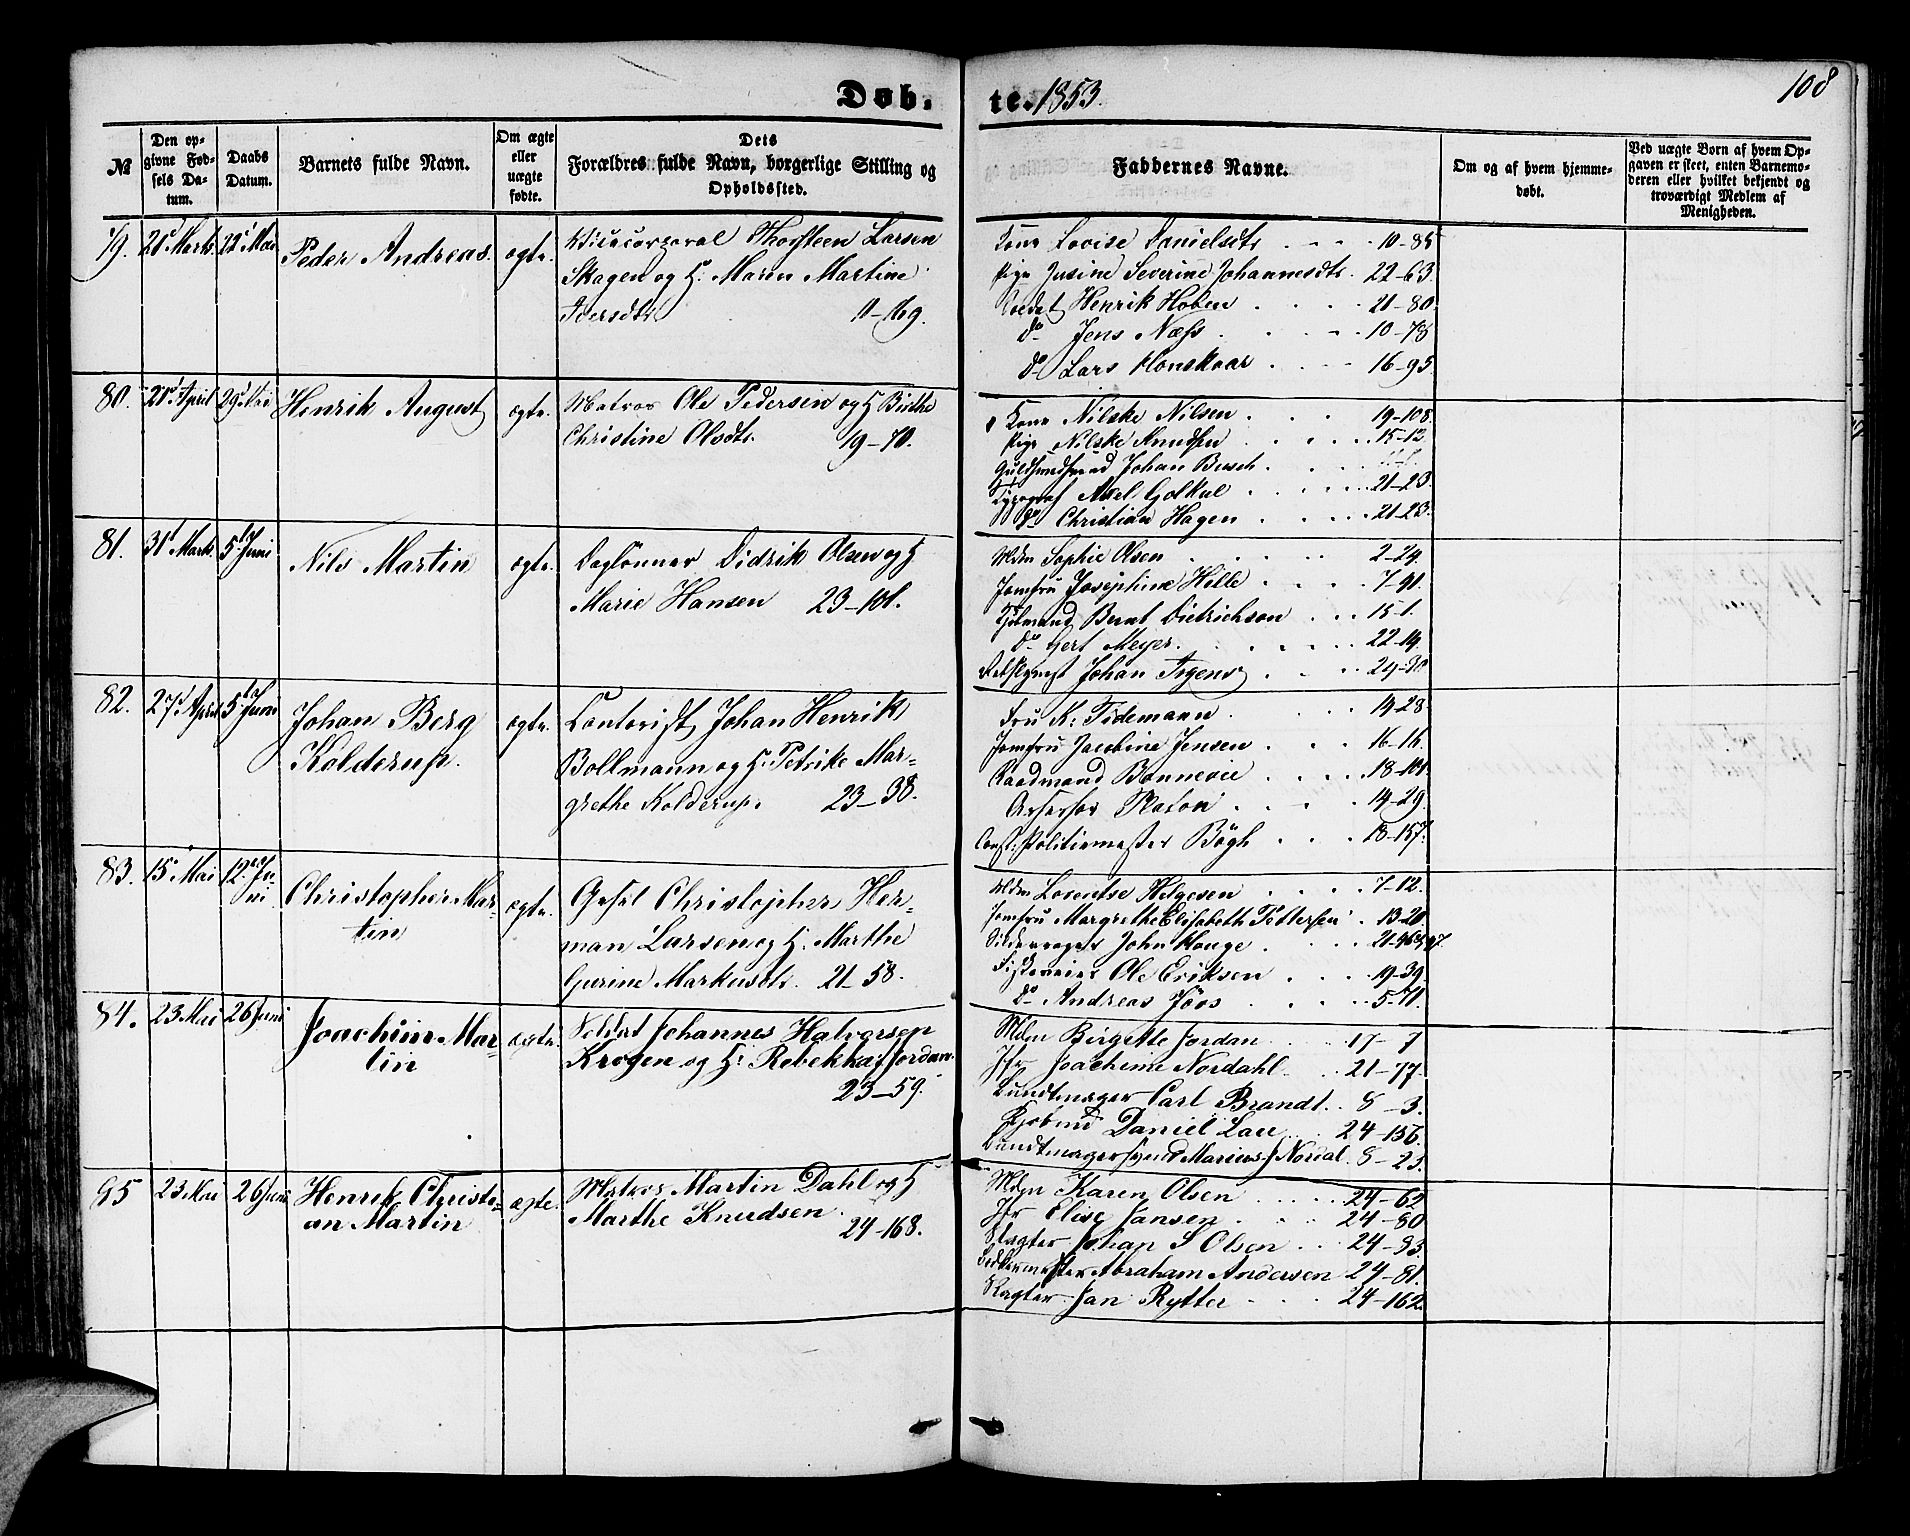 Døb. te. 1853.
108
№
Den opgivne Fødsels Datum.
Daabs Datum.
Barnets fulde Navn.
Om ægte eller uægte fødte.
Dets Forældres fulde Navn, borgerlige Stilling og Opholdssted.
Faddernes Navne.
Om og af hvem hjemmedøbt.
Ved uægte Børn af hvem Opgaven er skeet, enten Barnemoderen eller hvilket bekjendt og troværdigt Medlem af Menigheden.
79. 22 Mai Peder Andreas. ægte.
Thorsteen Larsen
Skagen og H: Maren Martine
Iversdtr 11-169.
Kone Lovise Danielsdtr 10-85
Pige Jusine Severine Johannesdtr. 22-63.
Henrik Hoben 21-80.
do Jens Næss 10-78
do Lars Honskaar 16-95.
80. April 29 Mai Henrik August ægte.
Matros Ole Pedersen og H Birthe
Christine Olsdtr. 19-70.
Kone Nilske Nilsen 19-108.
Pige Nilske Knudsen 15-12
Guldsmedsvend Johan Busch
Axel 21-23.
do Christian Hagen 21-23.
81. 31 Marts 5 Juni Nils Martin ægte.
Daglønner Didrik Olsen og H
Marie Hansen 23-101.
Mdm Sophie Olsen 2-24.
Jomfru Josephine Hille 7-91.
Kjøbmand Bernt Dietrichson 15-1.
do Gert Meyer 22-14.
Johan 24-30
82. 27 April 5 Juni Johan Berg
Kolderup. ægte.
Contorist Johan Henrik
Bollmann og H: Petrike Mar-
grethe Kolderup. 23-38.
Fru K: Tidemann 14-28.
Jomfru Jacobine Jensen 16-16.
Raadmand Bonnevie 18-101.
Assessor Platou 14-29.
Const: Politiemester Bøgh 18-157.
83. 15 Mai 12 Ju-
ni Christopher Mar-
tin ægte.
Christopher Her-
man Larsen og H: Marthe
Gurine Markusdtr. 21-58.
Mdm Lorentse Helgesen 7-12.
Jomfru Margrethe Elisabeth Pettersen 13-20
John Hauge
Ole Eriksen 19-39.
do Andreas 5-71.
84. 23 Mai 26 Juni Joachim Mar-
tin ægte.
Soldat Johannes Halvorsen
Krogen og H: Rebekka Jordan.
23-59.
Mdm Birgette Jordan 17-7
Jfr Joachime Nordahl 21-77.
Bundtmager Carl Brandt 8-3.
Daniel Lau 24-156.
Bundtmagersvend Marius Nordal 8-23.
85 23 Mai 26 Juni Henrik Christi-
an Martin ægte.
Matros Martin Dahl og H
Marthe Knudsen.
24-168.
Mdm Karen Olsen 24-62
Jfr Elise Jansen 24-80
Slagter Johan S Olsen 24-93.
Abraham Andersen 24-81.
Slagter Jan Rytter 24-162.